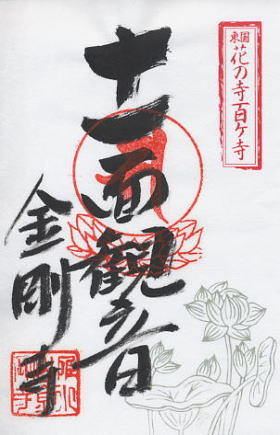 東国
花の寺百ケ寺
十一面観音
金剛寺